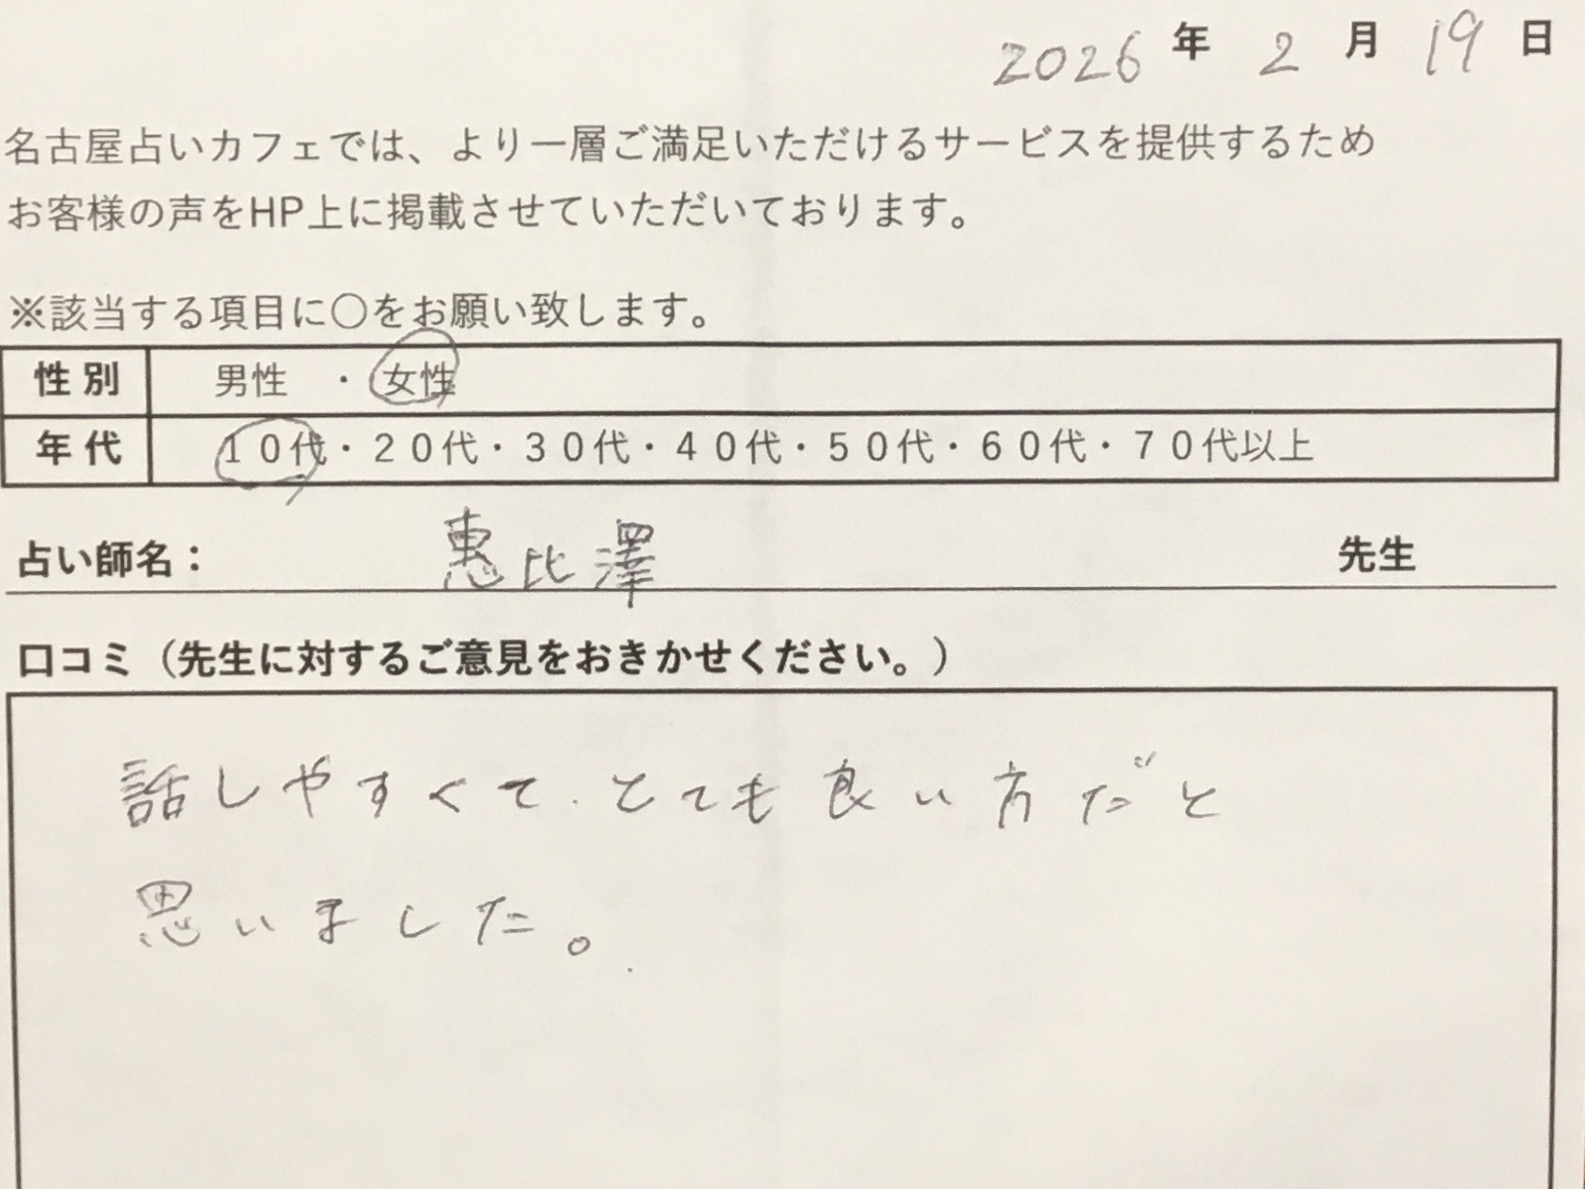 2026 年 2 月 19 日
名古屋占いカフェでは、より一層ご満足いただけるサービスを提供するため
お客様の声をHP上に掲載させていただいております。
※該当する項目に〇をお願い致します。
性別 男性 ・ 女性
年代 10代・20代・30代・40代・50代・60代・70代以上
占い師名： 恵比澤 先生
口コミ（先生に対するご意見をおきかせください。）
話しやすくて、とても良い方だと
思いました。